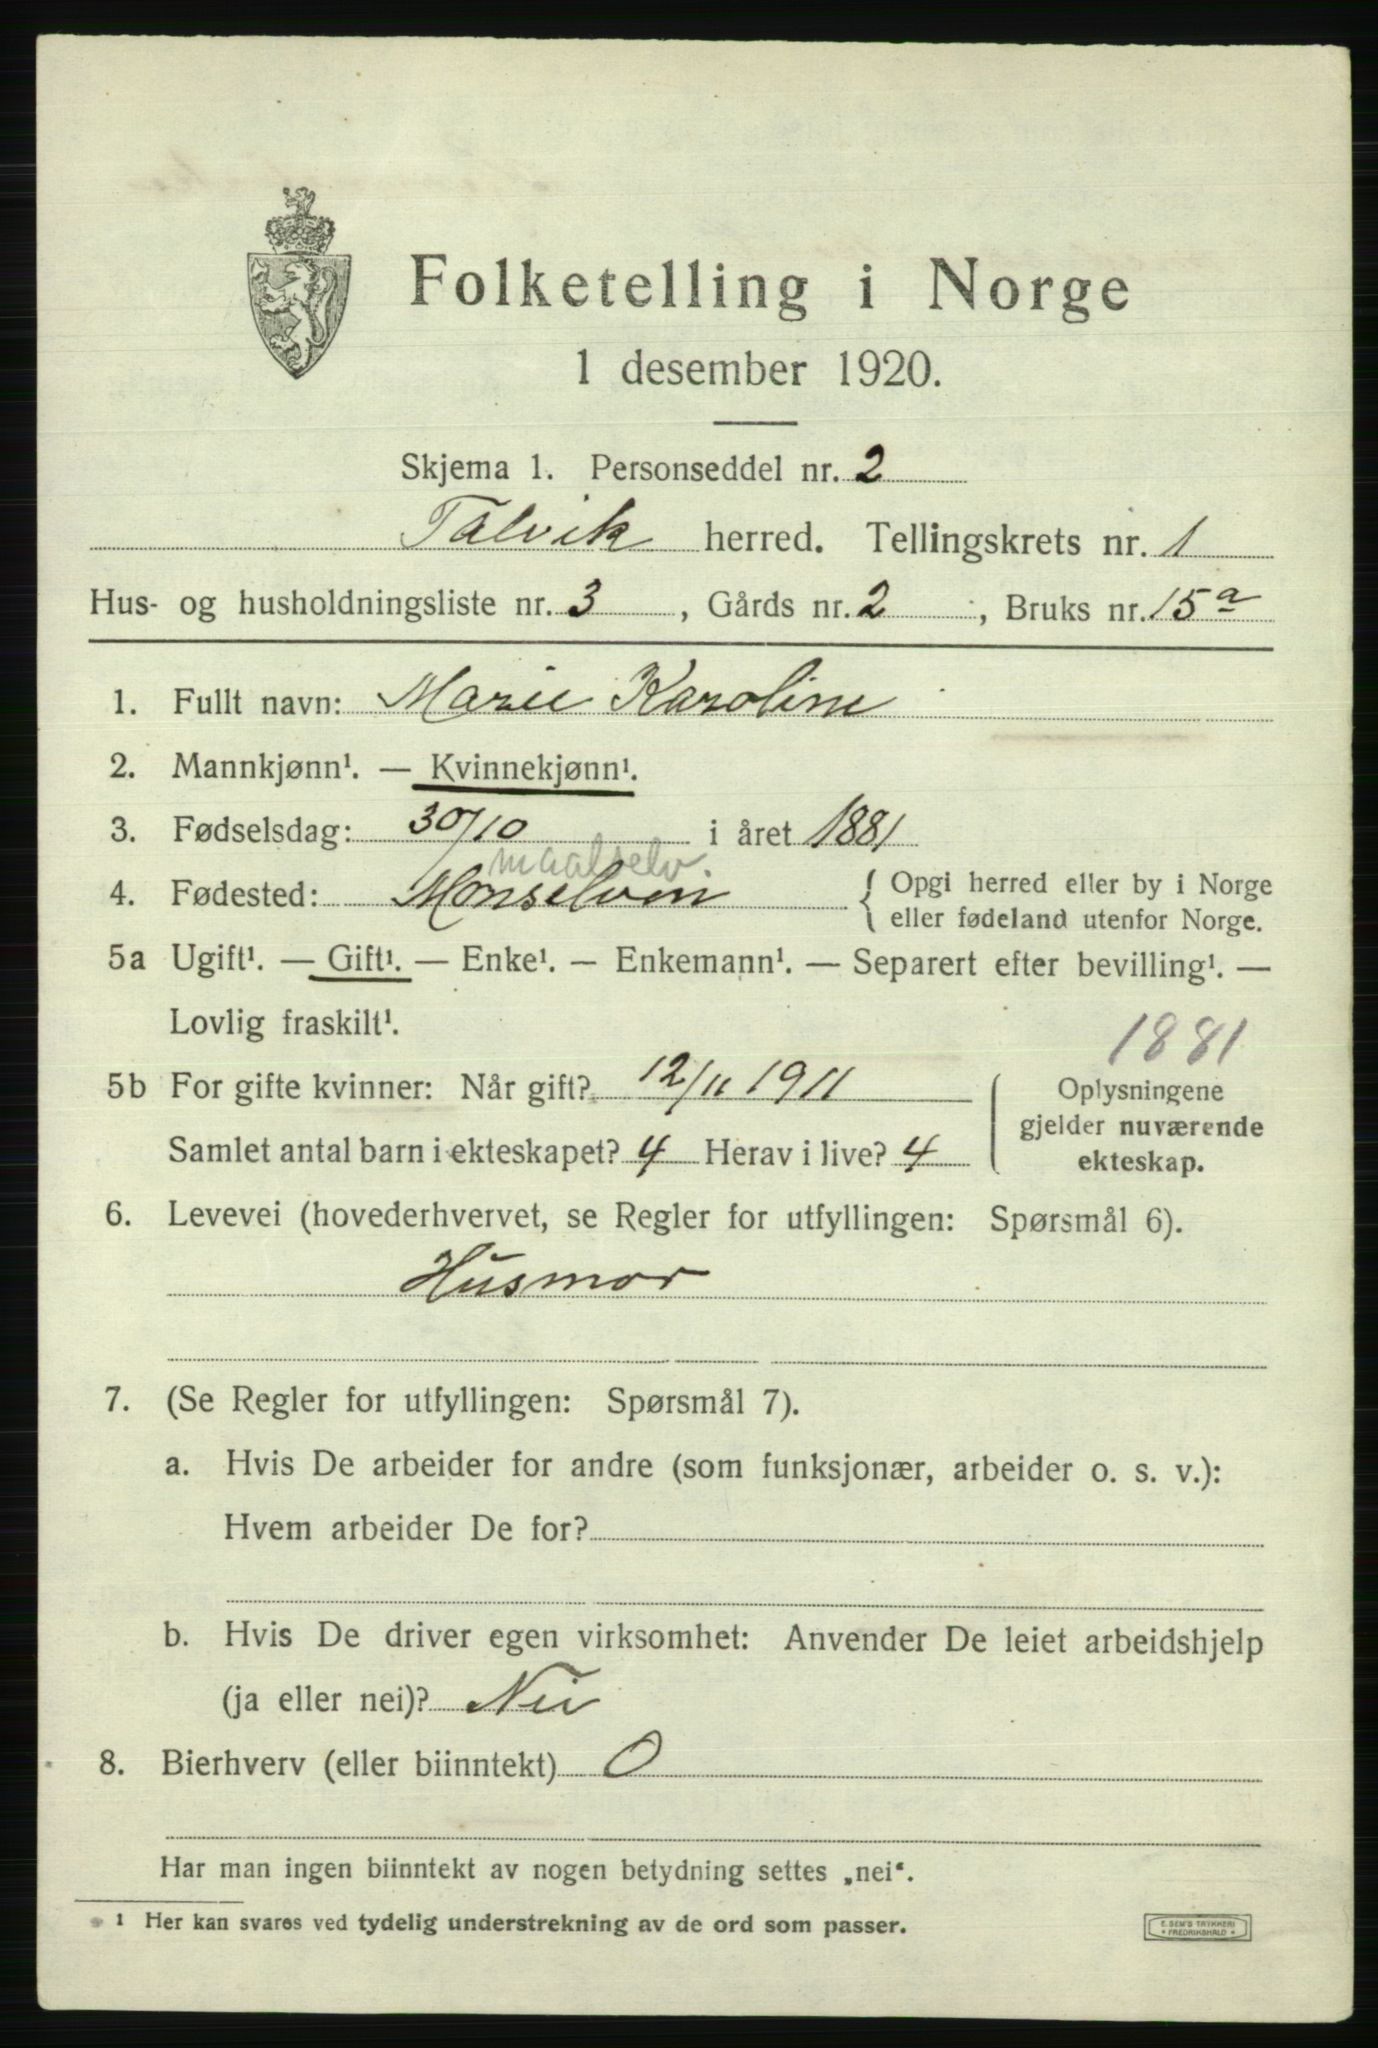 Folketelling i Norge
1 desember 1920.
Skjema 1. Personseddel nr. 2
Talvik herred. Tellingskrets nr. 1
Hus- og husholdningsliste nr. 3, Gårds nr. 2, Bruks nr. 15a
1. Fullt navn: Marie Karoline
2. Mannkjønn¹. — Kvinnekjønn¹.
3. Fødselsdag: 30/10 i året 1881
maalselv.
4. Fødested: Monselven { Opgi herred eller by i Norge
eller fødeland utenfor Norge.
5a Ugift¹. — Gift¹. — Enke¹. — Enkemann¹. — Separert efter bevilling¹. —
Lovlig fraskilt¹.
1881
5b For gifte kvinner: Når gift? 12/11 1911
Samlet antal barn i ekteskapet? 4 Herav i live? 4
Oplysningene
gjelder nuværende
ekteskap.
6. Levevei (hovederhvervet, se Regler for utfyllingen: Spørsmål 6).
Husmor
7. (Se Regler for utfyllingen: Spørsmål 7).
a. Hvis De arbeider for andre (som funksjonær, arbeider o. s. v.):
Hvem arbeider De for?
b. Hvis De driver egen virksomhet: Anvender De leiet arbeidshjelp
(ja eller nei)? Nei
8. Bierhverv (eller biinntekt) 0
Har man ingen biinntekt av nogen betydning settes „nei“.
¹ Her kan svares ved tydelig understrekning av de ord som passer.
E. SEM'S TRYKKERI
* FREDRIKSHALD *